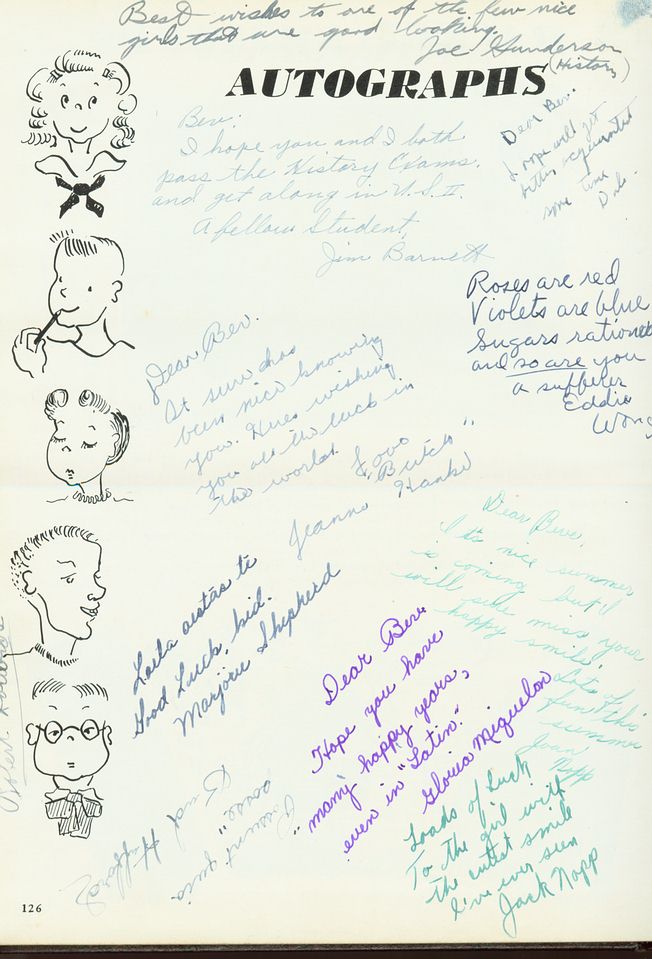 Best wishes to one of the few nice
girls that are good looking.
Joe Gunderson
(History)
AUTOGRAPHS
Bev:
I hope you and I both
pass the History Exams.
and get along in U.S. II.
A fellow Student,
Jim Barnett
Dear Bev:
I hope will get
better acquainted
some time
Roses are red
Violets are blue
Sugars rationed
and so are you
a sufferer
Eddie
Wong
Dear Bev.
It sure has
been nice knowing
you. Heres wishing
you all the luck in
the world.
Love
"Butch"
Jeanne Hanke
Dear Bev,
It's nice summer
is coming but I
will sure miss your
happy smile.
Lots of
fun this
summer
Joan
Nopp
Good Luck, kid.
Marjorie Shepherd
Dear Bev.
Hope you have
many happy years,
even in "Latin".
Gloria Miquelon
Loads of Luck
To the girl with
the cutest smile
I've ever seen
Jack Nopp
Robert
126